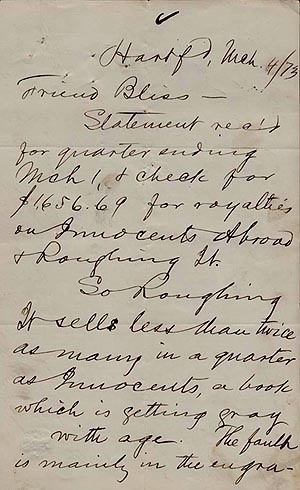 Hartf'd, Mch 4/73
Friend Bliss —
Statement rec'd
for quarter ending
Mch 1, & check for
$1,656.69 for royalties
on Innocents Abroad
& Roughing It.
So Roughing
It sells less than twice
as many in a quarter
as Innocents, a book
which is getting gray
with age. The fault
is mainly in the engra-